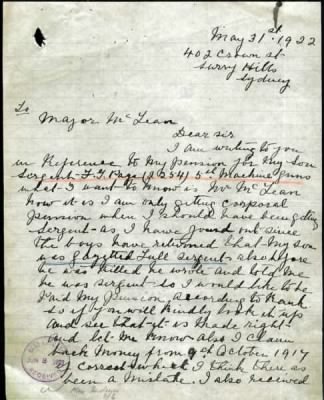 May 31st 1922
402 Crown st
Surry Hills
Sydney
To
Major Mc Lean
Dear sir
I am writing to you
in Reference to My Pension for My son
Sergent 5th Machine guns
what I want to Know is Mr Mc Lean
how it is I am only getting Corporal
Pension when I should have been getting
Sergent as I have found out since
the boys have returned that My son
was gazetted Full Sergent also before
he was Killed he wrote and told me
he was sergent so I would like to be
Paid My Pension according to Rank
so if you will Kindly look it up
and see that it is made right
and let me Know also I claim
back Money from 9th October 1917
if correct which I think there as
been a Mistake. I also received